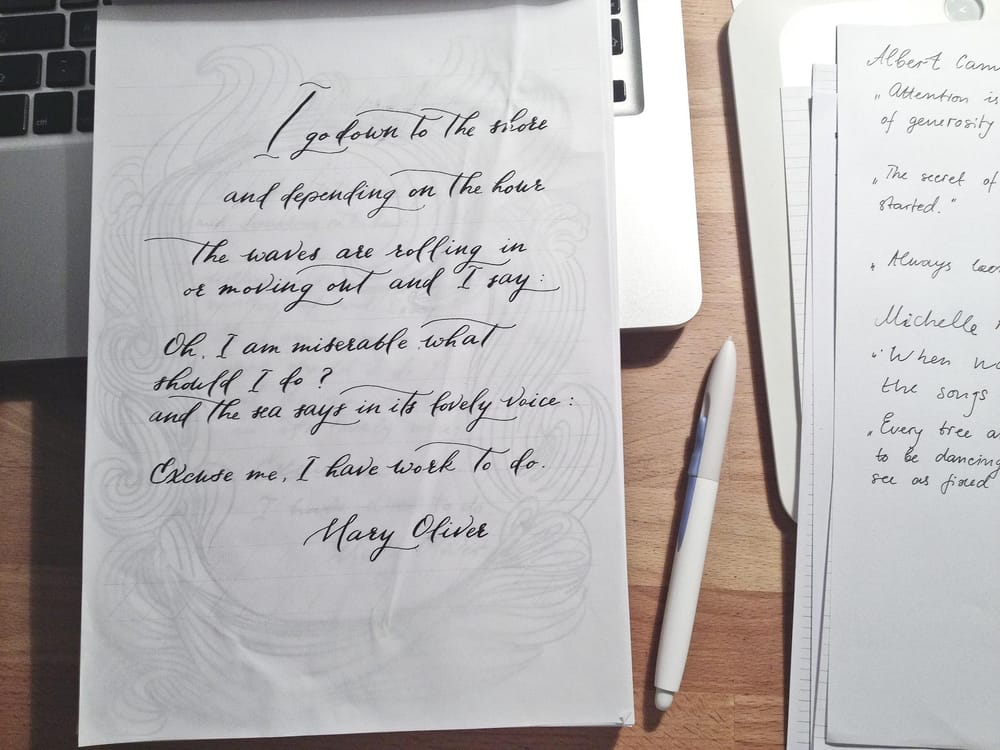 I go down to the shore
and depending on the hour
The waves are rolling in
or moving out and I say:
Oh, I am miserable what
should I do?
and the sea says in its lovely voice:
Excuse me, I have work to do.
Mary Oliver
Albert Cam
„Attention is
of generosity
„The secret of
started."
„Always
Michelle
„When
the songs
„Every tree
to be dancing
see as fixed
ctrl